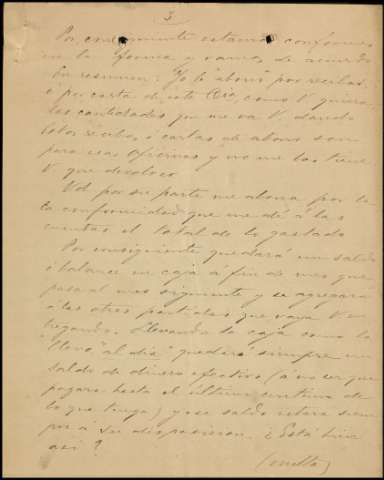 3
Por consiguiente estamos conformes
en la forma y vamos de acuerdo
En resumen: Yo le abono por recibos
o por carta de este Cia, como V. quiera,
las cantidades que me va V. dando
Estos recibos o cartas de abono son
para esas oficinas y no me los tiene
V. que devolver
Vd por su parte me abona por
la conformidad que me dé a las
cuentas el total de lo gastado
Por consiguiente quedará un saldo
o balance en caja a fin de mes que
pasa al mes siguiente y se agregará
a las otras partidas que vaya V. en-
tregando. Llevando la caja como la
llevo "al día" quedará siempre un
saldo de dinero efectivo (a no ser que
pagara hasta el último centimo de
lo que tenga) y ese saldo estará siem
pre a su disposicion. ¿Está bien
asi?
(vuelta)